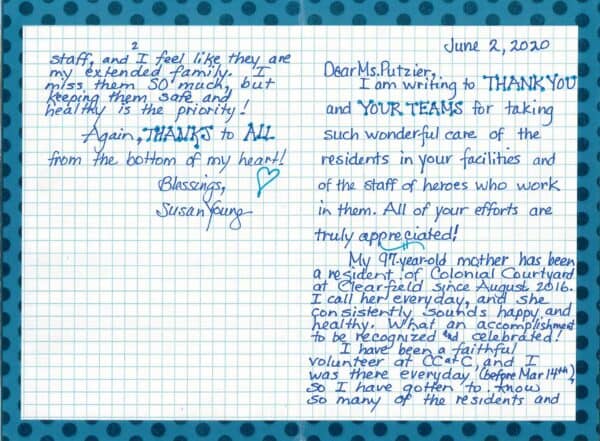 June 2, 2020
Dear Ms. Putzier,
I am writing to THANK YOU
and YOUR TEAMS for taking
such wonderful care of the
residents in your facilities and
of the staff of heroes who work
in them. All of your efforts are
truly appreciated!
My 97-year-old mother has been
a resident of Colonial Courtyard
at Clearfield since August 2016.
I call her everyday, and she
consistently sounds happy and
healthy. What an accomplishment
to be recognized and celebrated!
I have been a faithful
volunteer at CC at C, and I
was there everyday (before Mar 14th),
so I have gotten to know
so many of the residents and
2
staff, and I feel like they are
my extended family. I
miss them SO much, but
keeping them safe and
healthy is the priority!
Again, THANKS to ALL
from the bottom of my heart!
Blessings,
Susan Young